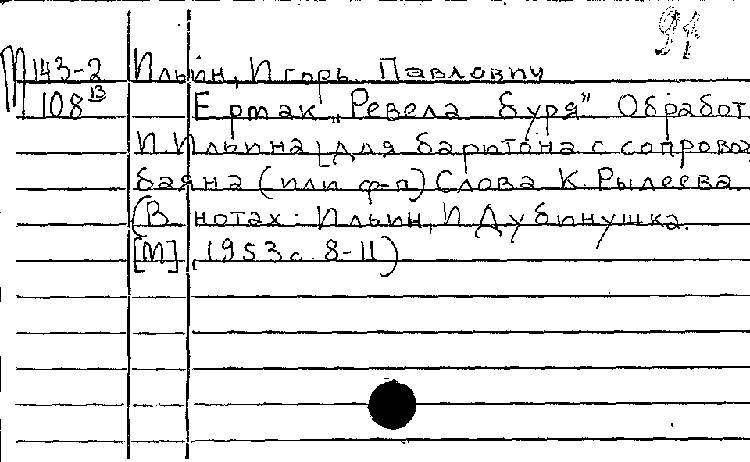 91
М143-2 Ильин, Игорь Павлович
108 В Ермак „Ревела буря" Обработ.
И. Ильина [для баритона с сопровод
баяна (или ф-п) Слова К. Рылеева.
(В нотах: Ильин, И Дубинушка.
[М], 1953 с. 8-11)